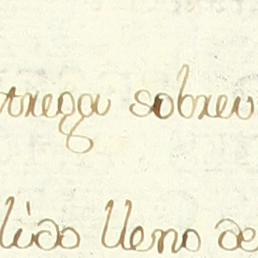 trega sobreu
lido Ueno de